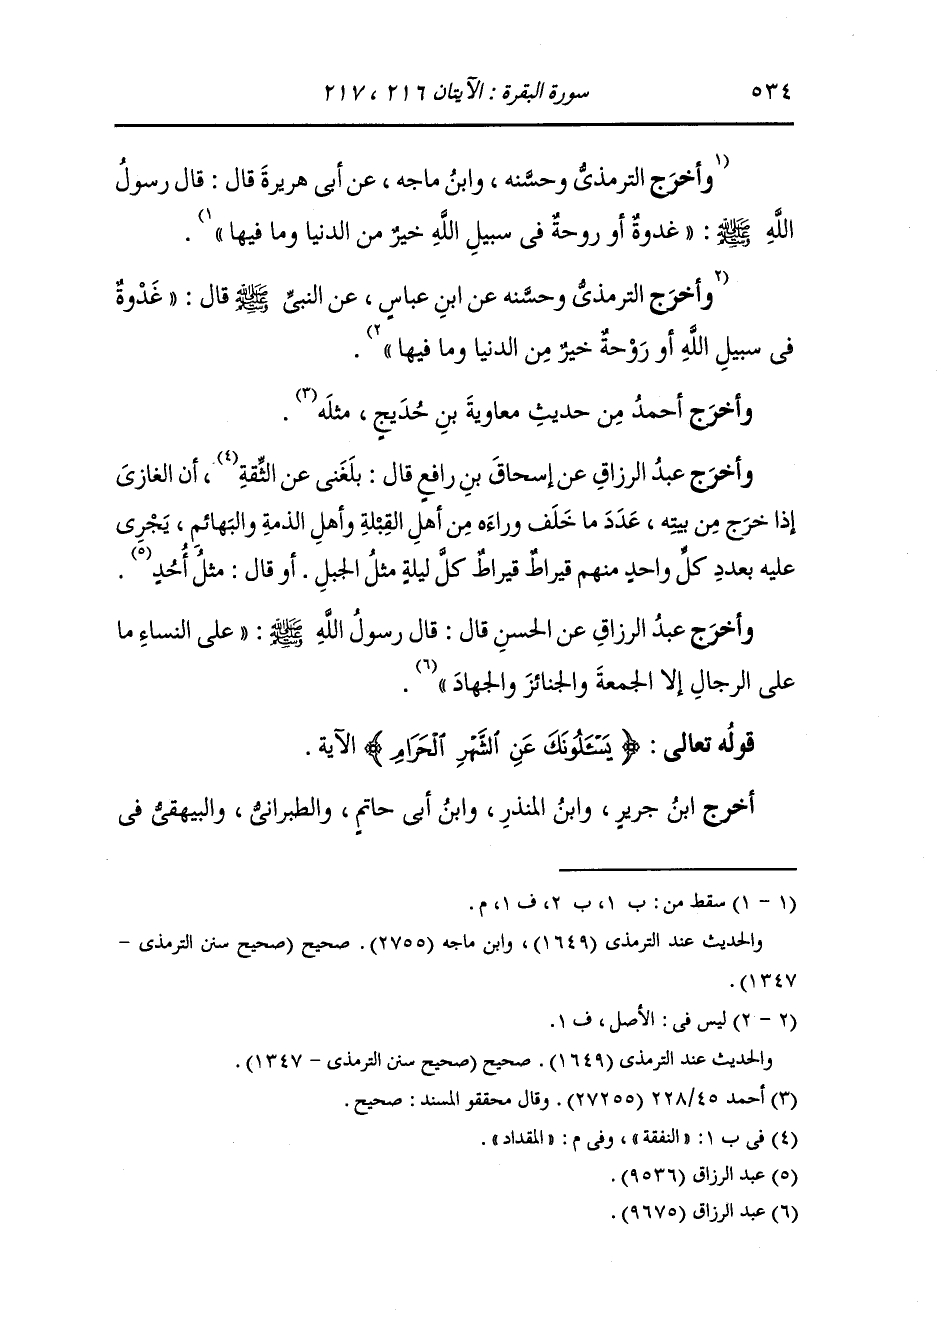 ٥٣٤ سورة البقرة : الآيتان ٢١٦ ، ٢١٧
(١) وأخرَج الترمذىُّ وحسَّنه ، وابنُ ماجه ، عن أبى هريرةَ قال : قال رسولُ
اللَّهِ ﷺ : « غدوةٌ أو روحةٌ فى سبيلِ اللَّهِ خيرٌ من الدنيا وما فيها »(١) .
(٢) وأخرَج الترمذىُّ وحسَّنه عن ابنِ عباسٍ ، عن النبىِّ ﷺ قال : « غَدْوةٌ
فى سبيلِ اللَّهِ أو رَوْحةٌ خيرٌ مِن الدنيا وما فيها »(٢) .
وأخرَج أحمدُ مِن حديثِ معاويةَ بنِ حُدَيجٍ ، مثلَه(٣) .
وأخرَج عبدُ الرزاقِ عن إسحاقَ بنِ رافعٍ قال : بلَغَنى عن الثِّقةِ(٤) ، أن الغازىَ
إذا خرَج مِن بيتِه ، عَدَدَ ما خَلَف وراءَه مِن أهلِ القِبْلةِ وأهلِ الذمةِ والبَهائمِ ، يَجْرِى
عليه بعددِ كلِّ واحدٍ منهم قيراطٌ قيراطٌ كلَّ ليلةٍ مثلُ الجبلِ . أو قال : مثلُ أُحُدٍ(٥) .
وأخرَج عبدُ الرزاقِ عن الحسنِ قال : قال رسولُ اللَّهِ ﷺ : « على النساءِ ما
على الرجالِ إلا الجمعةَ والجنائزَ والجهادَ »(٦) .
قولُه تعالى : ﴿ يَسْـَٔلُونَكَ عَنِ ٱلشَّهْرِ ٱلْحَرَامِ ﴾ الآية .
أخرج ابنُ جريرٍ ، وابنُ المنذرِ ، وابنُ أبى حاتمٍ ، والطبرانىُّ ، والبيهقىُّ فى
(١ - ١) سقط من : ب ١، ب ٢، ف ١، م .
والحديث عند الترمذى (١٦٤٩) ، وابن ماجه (٢٧٥٥) . صحيح (صحيح سنن الترمذى -
١٣٤٧) .
(٢ - ٢) ليس فى : الأصل ، ف ١.
والحديث عند الترمذى (١٦٤٩) . صحيح (صحيح سنن الترمذى - ١٣٤٧) .
(٣) أحمد ٢٢٨/٤٥ (٢٧٢٥٥) . وقال محققو المسند : صحيح .
(٤) فى ب ١: « النفقة » ، وفى م : « المقداد » .
(٥) عبد الرزاق (٩٥٣٦) .
(٦) عبد الرزاق (٩٦٧٥) .